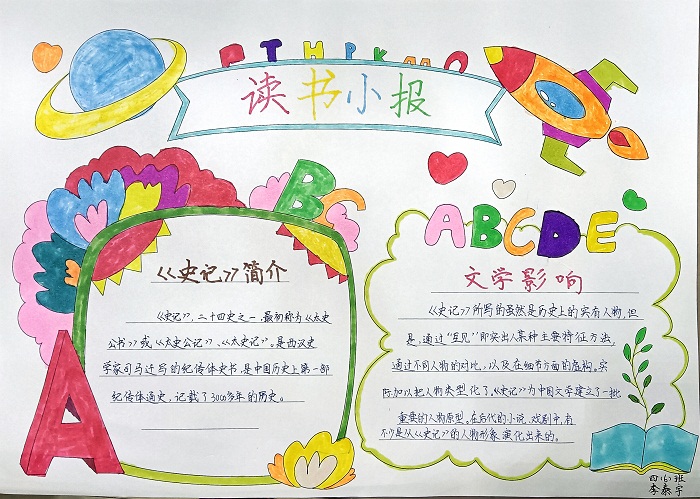 PTHPKMO
读书小报
BC
ABCDE
《史记》简介
《史记》,二十四史之一,最初称为《太史
公书》或《太史公记》、《太史记》。是西汉史
学家司马迁写的纪传体史书,是中国历史上第一部
纪传体通史,记载了3000多年的历史。
A
文学影响
《史记》所写的虽然是历史上的实有人物,但
是,通过“互见”即突出人某种主要特征方法,
通过不同人物的对比,以及在细节方面的虚构。实
际加以把人物类型化了。《史记》为中国文学建立了一批
重要的人物原型。在后代的小说、戏剧中,有
不少是从《史记》的人物形象演化出来的。
李泰宇